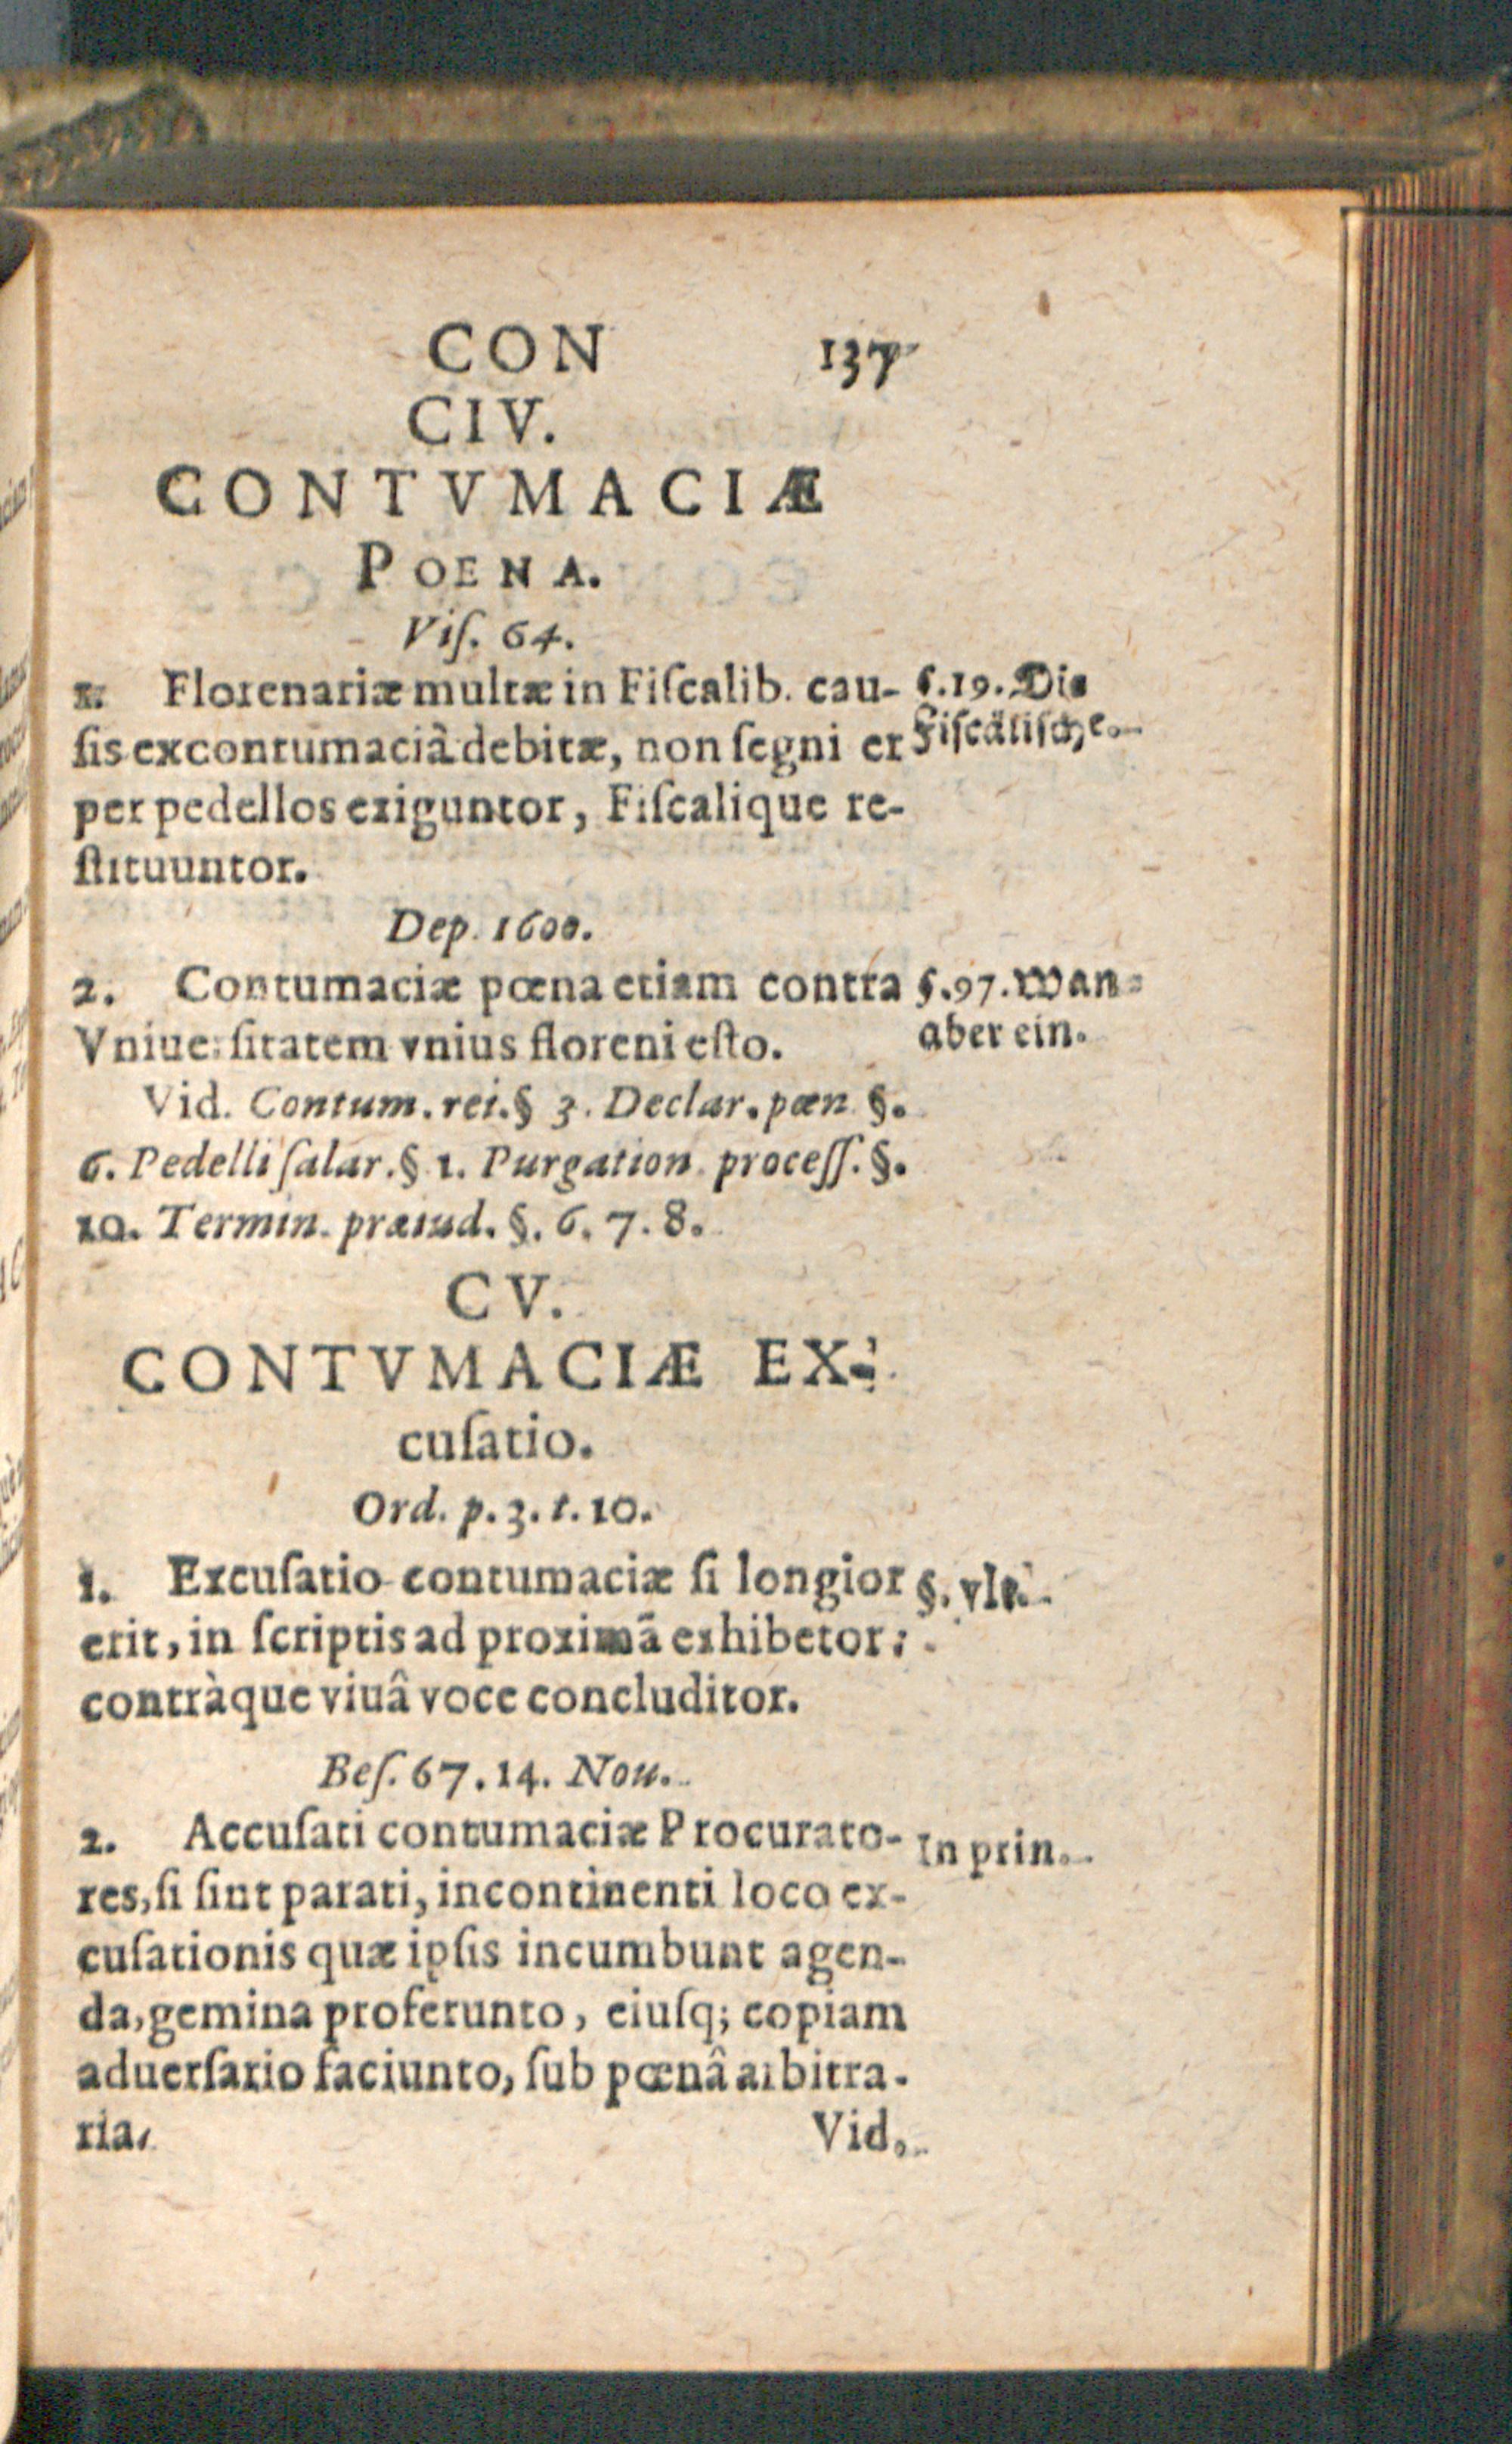 CON 137
CIV.
CONTVMACIÆ
POENA.
Viſ. 64.
1. Florenariæ multæ in Fiſcalib. cau-
ſis ex contumaciâ debitæ, non ſegni er
per pedellos exiguntor, Fiſcalique re-
ſtituuntor.
§.19. Die
Fiſcäliſche.
Dep. 1600.
2. Contumaciæ pœna etiam contra
Vniuerſitatem vnius floreni eſto.
§.97. Wan
aber ein.
Vid. Contum. rei. § 3. Declar. pœn §.
6. Pedelli ſalar. § 1. Purgation. proceſſ. §.
10. Termin. præiud. §. 6. 7. 8.
CV.
CONTVMACIÆ EX-
cuſatio.
Ord. p. 3. t. 10.
1. Excuſatio contumaciæ ſi longior
erit, in ſcriptis ad proximã exhibetor:
contràque viuâ voce concluditor.
§. vlt.
Beſ. 67. 14. Nou.
2. Accuſati contumaciæ Procurato-
res, ſi ſint parati, incontinenti loco ex-
cuſationis quæ ipſis incumbunt agen-
da, gemina proferunto, eiuſq; copiam
aduerſario faciunto, ſub pœnâ arbitra-
ria,
In prin.
Vid.